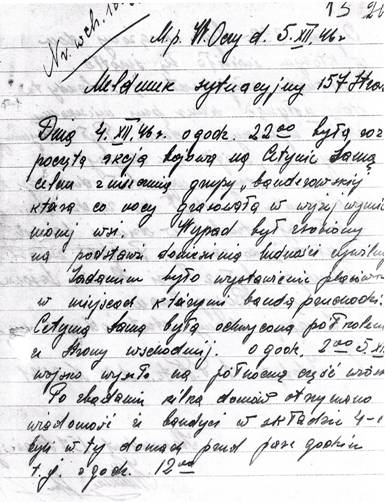 Nr. wch. 10
M.p. W. Oczy d. 5.XII.46r
Meldunek sytuacyjny 157 Stra
Dnia 4.XII.46r. o godz. 22°° była roz
poczęta akcja bojowa na Cetynie Samą
celem zniesienia grupy „banderowskiej
która co nocy grasowała w wyżej wymie
nionej wsi. Wypad był zrobiony
na podstawie doniesienia ludności cywilne
Zadaniem było wystawienie placówek
w miejscach którymi banda przechodzi.
Cetynia Sama była ochwycona półkolem
ze strony wschodniej. o godz. 2°° 5.XII
wojsko wyszło na północną część wsi
Po zbadaniu kilka domów otrzymano
wiadomość że bandyci w składzie 4-
byli w ty domach przed parę godzin
t.j. o godz. 12°°